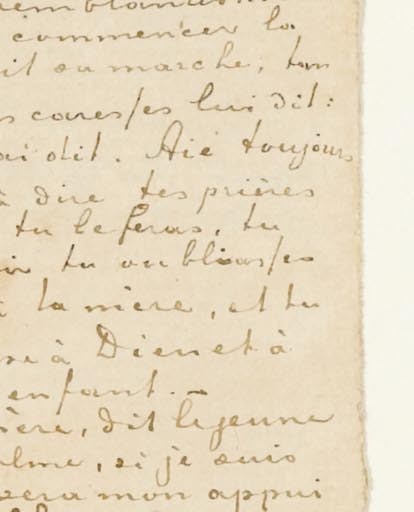 commencer la
it sa marche, ton
s caresses lui dit:
ai dit. Aie toujours
à dire tes prières
tu le feras, tu
tu oubliasses
à ta mère, et tu
re à Dieu et à
enfant. —
ère, dit le jeune
alme, si je suis
sera mon appui